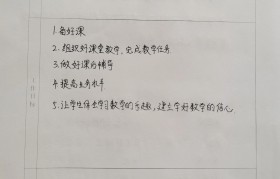 1.备好课
2.组织好课堂教学,完成教学任务
3.做好课后辅导
4.提高业务水平
5.让学生体会学习数学的乐趣,建立学好数学的信心